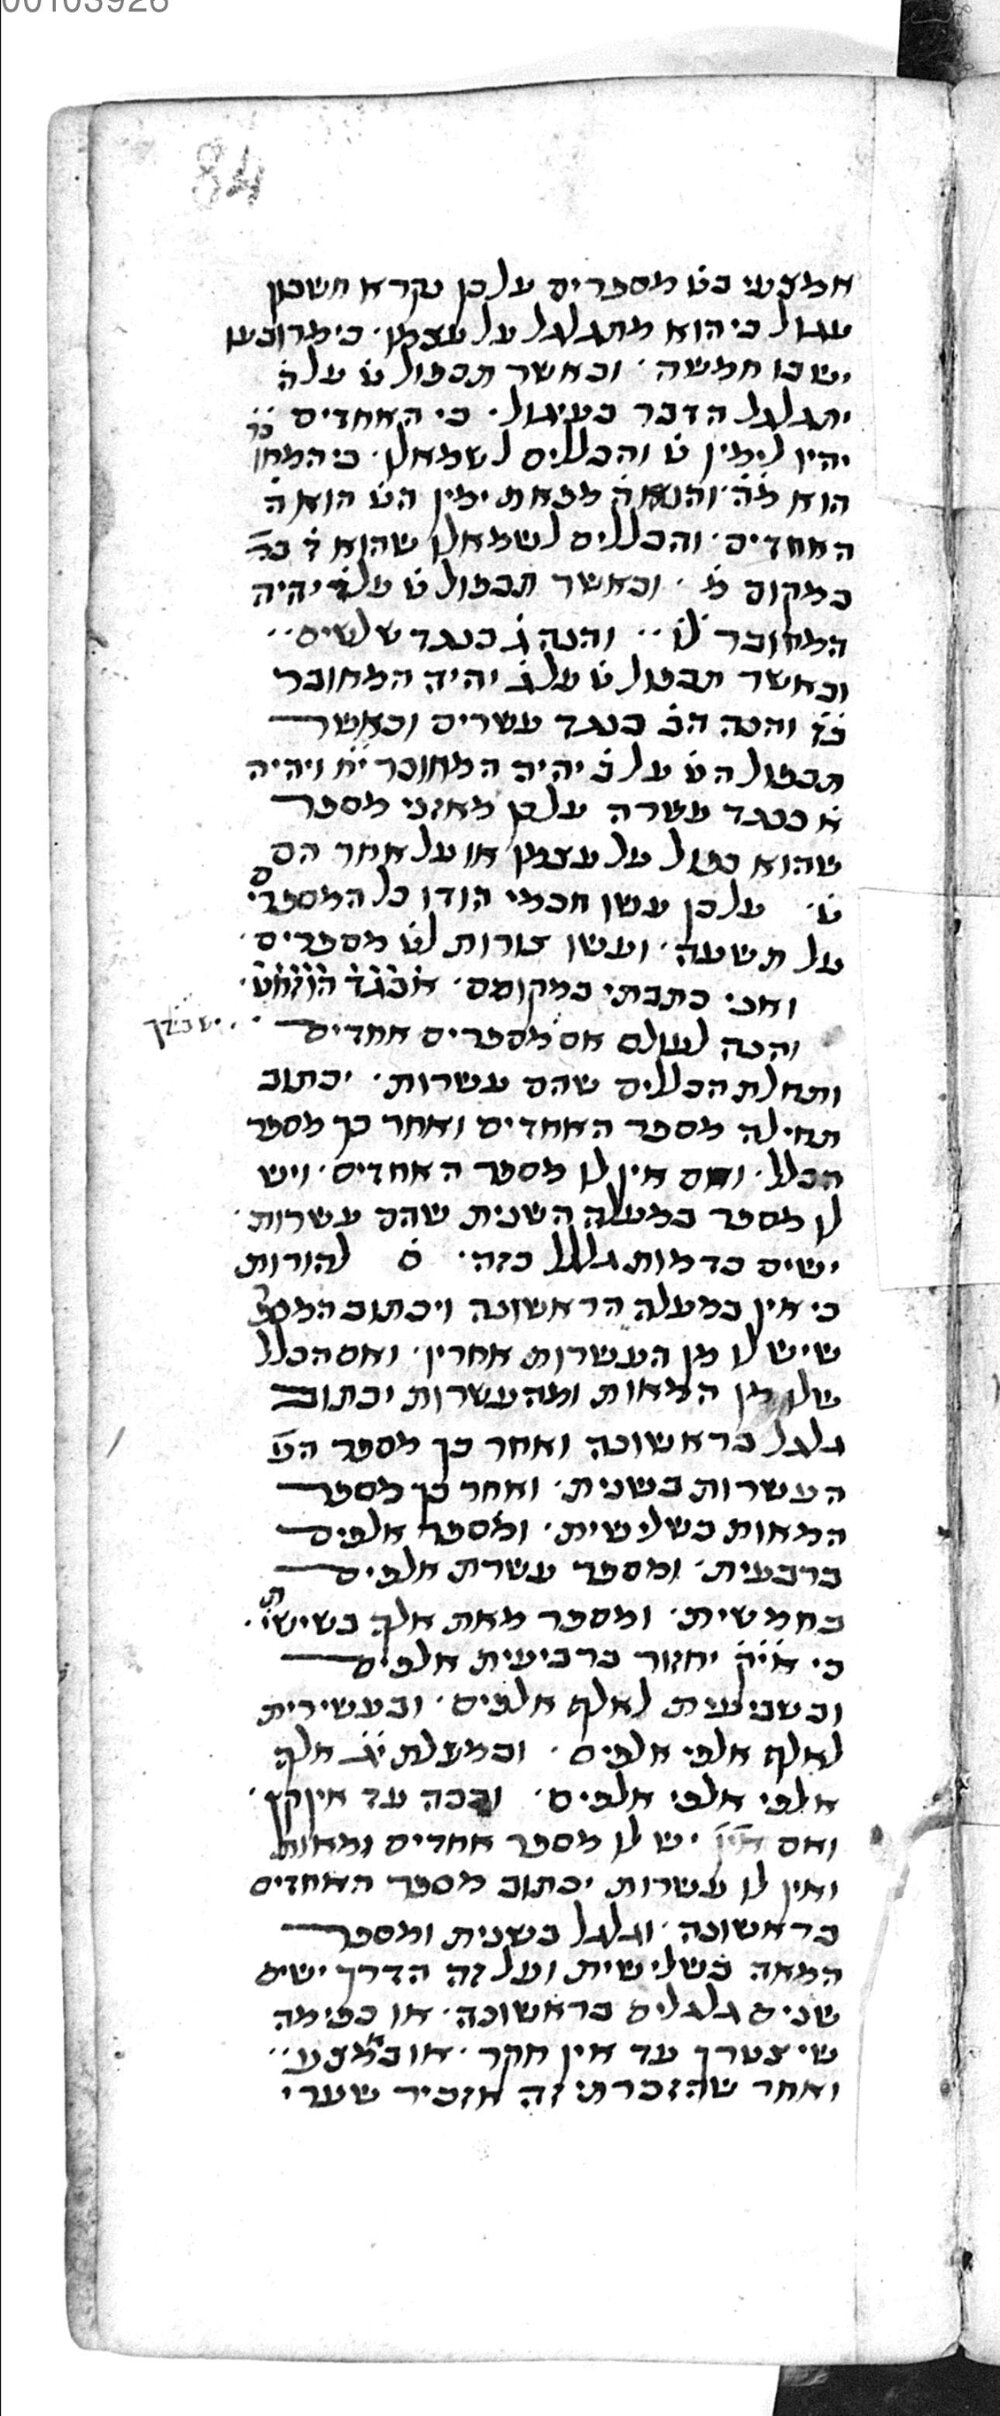 00103926
84
אמצעי בט מספרים על כן נקרא חשבון
עגול כי הוא מתגלגל על עצמו. כי מרובעו
יש בו חמשה. וכאשר תכפול ט על ה
יתגלגל הדבר כעיגול. כי האחדים
יהיו לימין ט והכללים לשמאלו. כי המחובר
הוא מ̇ה̇. והנה ה̇ מפאת ימין הט הוא ה̇
האחדים. והכללים לשמאלו שהוא ד̇ כי
במקום מ̇. וכאשר תכפול ט על ד̇ יהיה
המחובר ל̇ו̇.. והנה ג̇ כנגד שלשים..
וכאשר תכפול ט על ג̇ יהיה המחובר
כ̇ז̇ והנה הב̇ כנגד עשרים וכאשר
תכפול הט̇ על ב̇ יהיה המחובר י̇ח̇ ויהיה
א̇ כנגד עשרה על כן מאזני מספר
שהוא כפול על עצמו או על אחר הם
ט̇. על כן עשו חכמי הודו כל המספרים
על תשעה. ועשו צורות לט̇ מספרים.
ואני כתבתי במקומם. א̇ב̇ג̇ד̇ ה̇ו̇ז̇ח̇ט̇.
והנה לעולם אם מספרים אחדים
ותחלת הכללים שהם עשרות. יכתוב
תחילה מספר האחדים ואחר כך מספר
הכלל. ואם אין לו מספר האחדים. ויש
לו מספר במעלה השנית שהם עשרות.
ישים כדמות גלגל כזה. ο להורות
כי אין במעלה הראשונה ויכתוב המספר
שיש לו מן העשרות אחריו. ואם הכלל
שלו מן המאות ומהעשרות יכתוב
גלגל בראשונה ואחר כך מספר
העשרות בשנית. ואחר כך מספר
המאות בשלישית. ומספר אלפים
ברבעית. ומספר עשרת אלפים
בחמשית. ומספר מאת אלף בשישית.
כי יחזור ברביעית אלפים
ובשביעית לאלף אלפים. ובעשירית
לאלף אלפי אלפים. ובמעלת י̇ג̇ אלף
אלפי אלפי אלפים. וככה עד אין קץ.
ואם יש לו מספר אחדים ומאות
ואין לו עשרות יכתוב מספר האחדים
בראשונה. וגלגל בשנית ומספר
המאה בשלישית ועל זה הדרך ישים
שנים גלגלים בראשונה. או כפי מה
שיצטרך עד אין חקר. או באמצע..
ואחר שהזכרתי זה אזכיר שערי